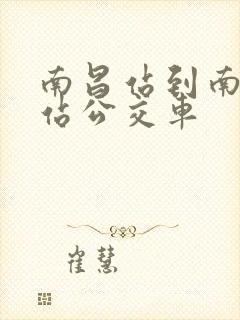 南昌佔到南
佔公交車
崔慧